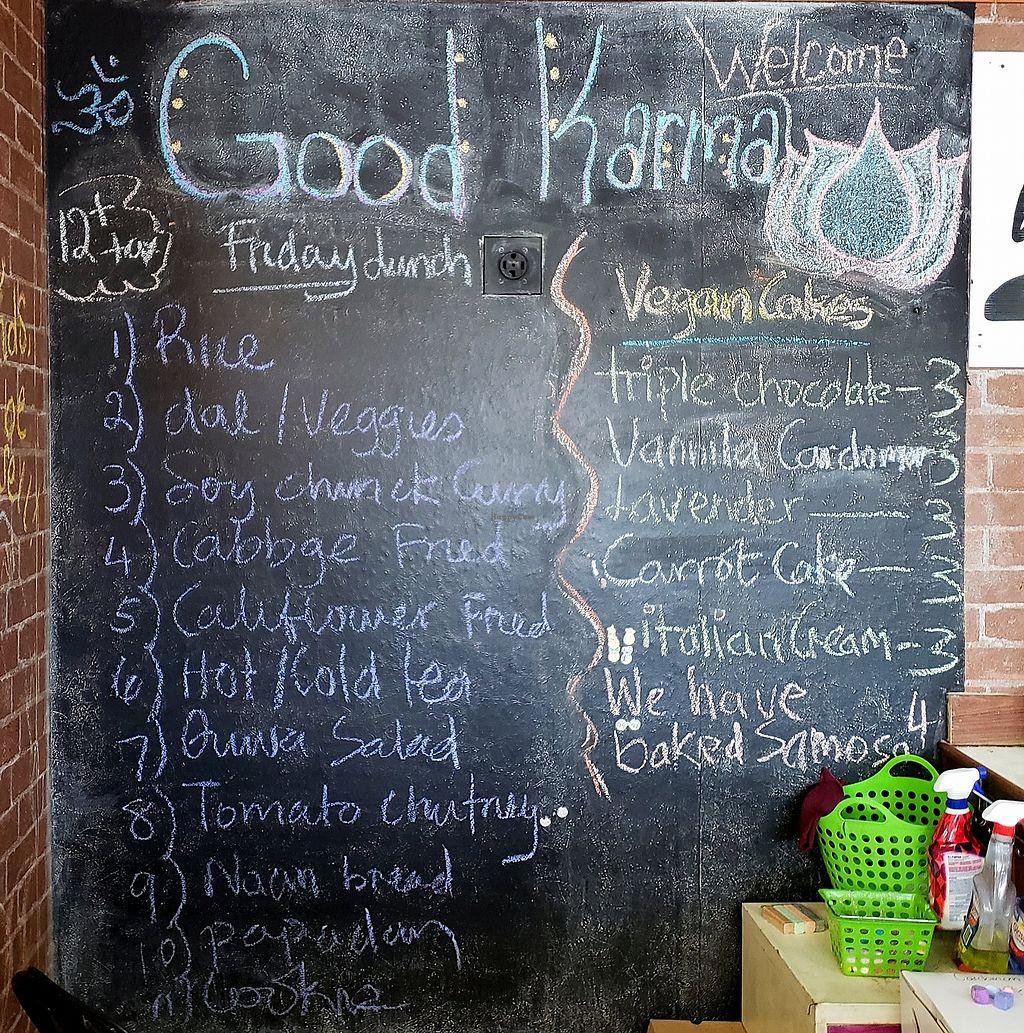 ॐ
Good Karma
Welcome
12 + tax
Friday Lunch
1) Rice
2) dal / Veggies
3) Soy chunck Curry
4) Cabbge Fried
5) Califlower Fried
6) Hot / Cold tea
7) Quinva Salad
8) Tomato chutney
9) Naan bread
10) papadam
11)
Vegan Cakes
triple chocolate - 3
Vannila Cardomm 3
Lavender — 3
Carrot Cake — 3
italian Cream - 3
We have
baked Samosa 4